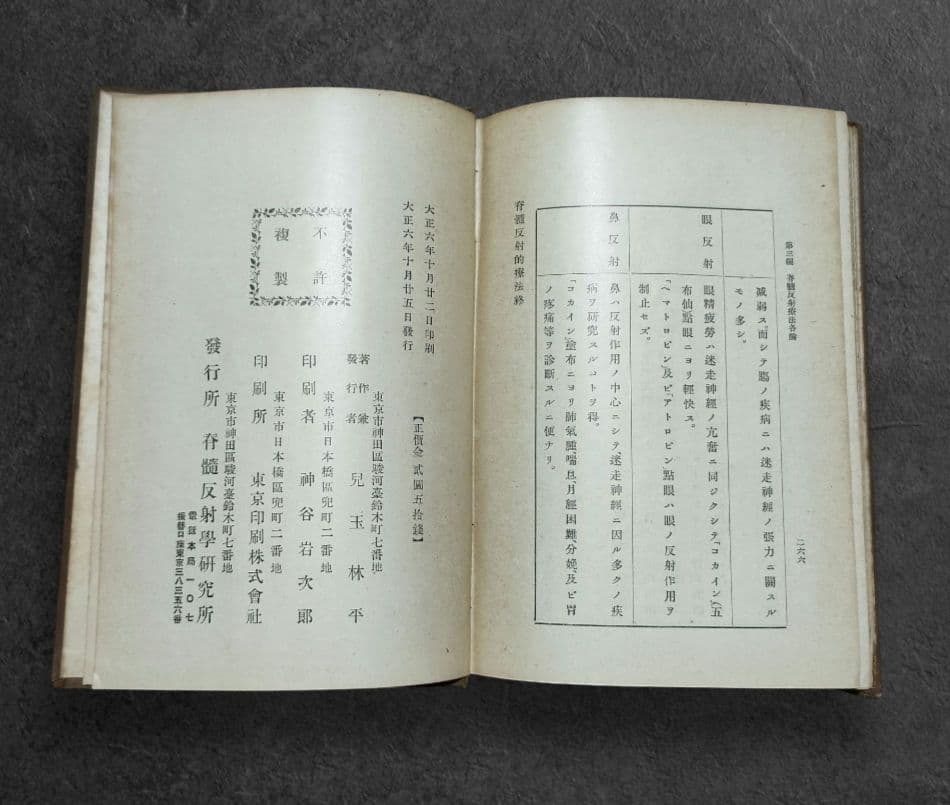 第三編 脊髓反射療法各論
二六六
減弱ス。而シテ腸ノ疾病ニハ迷走神經ノ張力ニ關スル
モノ多シ。
眼反射
眼精疲勞ハ迷走神經ノ亢奮ニ同ジクシテ「コカイン」(五
布仙)點眼ニヨリ輕快ス。
「ヘマトロピン」及ビ「アトロピン」點眼ハ眼ノ反射作用ヲ
制止セズ。
鼻反射
鼻ハ反射作用ノ中心ニシテ、迷走神經ニ因ル多クノ疾
病ヲ研究スルコトヲ得。
「コカイン」塗布ニヨリ肺氣腫、喘息、月經困難、分娩、及ビ胃
ノ疼痛等ヲ診斷スルニ便ナリ。
脊髓反射的療法終
大正六年十月廿二日印刷
大正六年十月廿五日發行
【正價金貳圓五拾錢】
不許
複製
東京市神田區駿河臺鈴木町七番地
著作兼
發行者 兒玉林平
東京市日本橋區兜町二番地
印刷者 神谷岩次郎
東京市日本橋區兜町二番地
印刷所 東京印刷株式會社
東京市神田區駿河臺鈴木町七番地
發行所 脊髓反射學硏究所
電話本局一〇七
振替口座東京三八三五六番